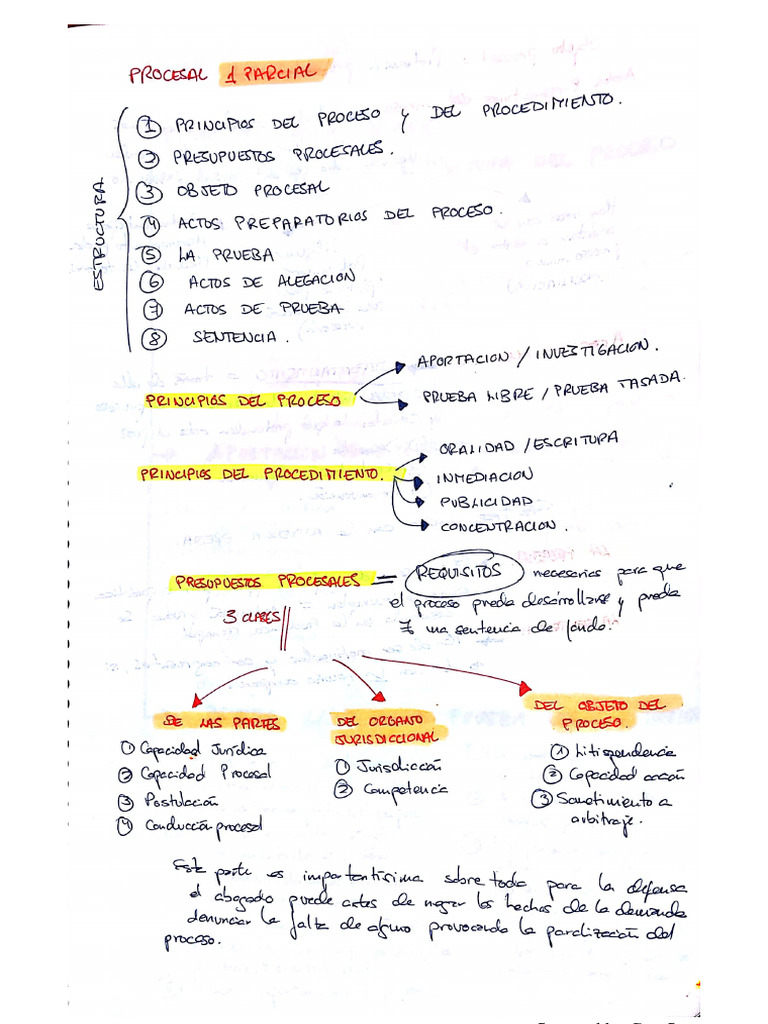 PROCESAL 1 PARCIAL
ESTRUCTURA
1 PRINCIPIOS DEL PROCESO y DEL PROCEDIMIENTO.
2 PRESUPUESTOS PROCESALES.
3 OBJETO PROCESAL
4 ACTOS PREPARATORIOS DEL PROCESO.
5 LA PRUEBA
6 ACTOS DE ALEGACION
7 ACTOS DE PRUEBA
8 SENTENCIA.
PRINCIPIOS DEL PROCESO
APORTACION / INVESTIGACION.
PRUEBA LIBRE / PRUEBA TASADA.
PRINCIPIOS DEL PROCEDIMIENTO.
ORALIDAD / ESCRITURA
INMEDIACION
PUBLICIDAD
CONCENTRACION.
PRESUPUESTOS PROCESALES = REQUISITOS necesarios para que
el proceso pueda desarrollarse y pueda
una sentencia de fondo.
3 CLASES
DE LAS PARTES
1 Capacidad Jurídica
2 Capacidad Procesal
3 Postulación
4 Conducción procesal
DEL ORGANO
JURISDICCIONAL
1 Jurisdicción
2 Competencia
DEL OBJETO DEL
PROCESO.
1 Litispendencia
2 Capacidad acción
3 Sometimiento a
arbitraje.
Esta parte es importantísima sobre todo para la defensa
el abogado puede antes de negar los hechos de la demanda
denunciar la falta de alguno provocando la paralización del
proceso.